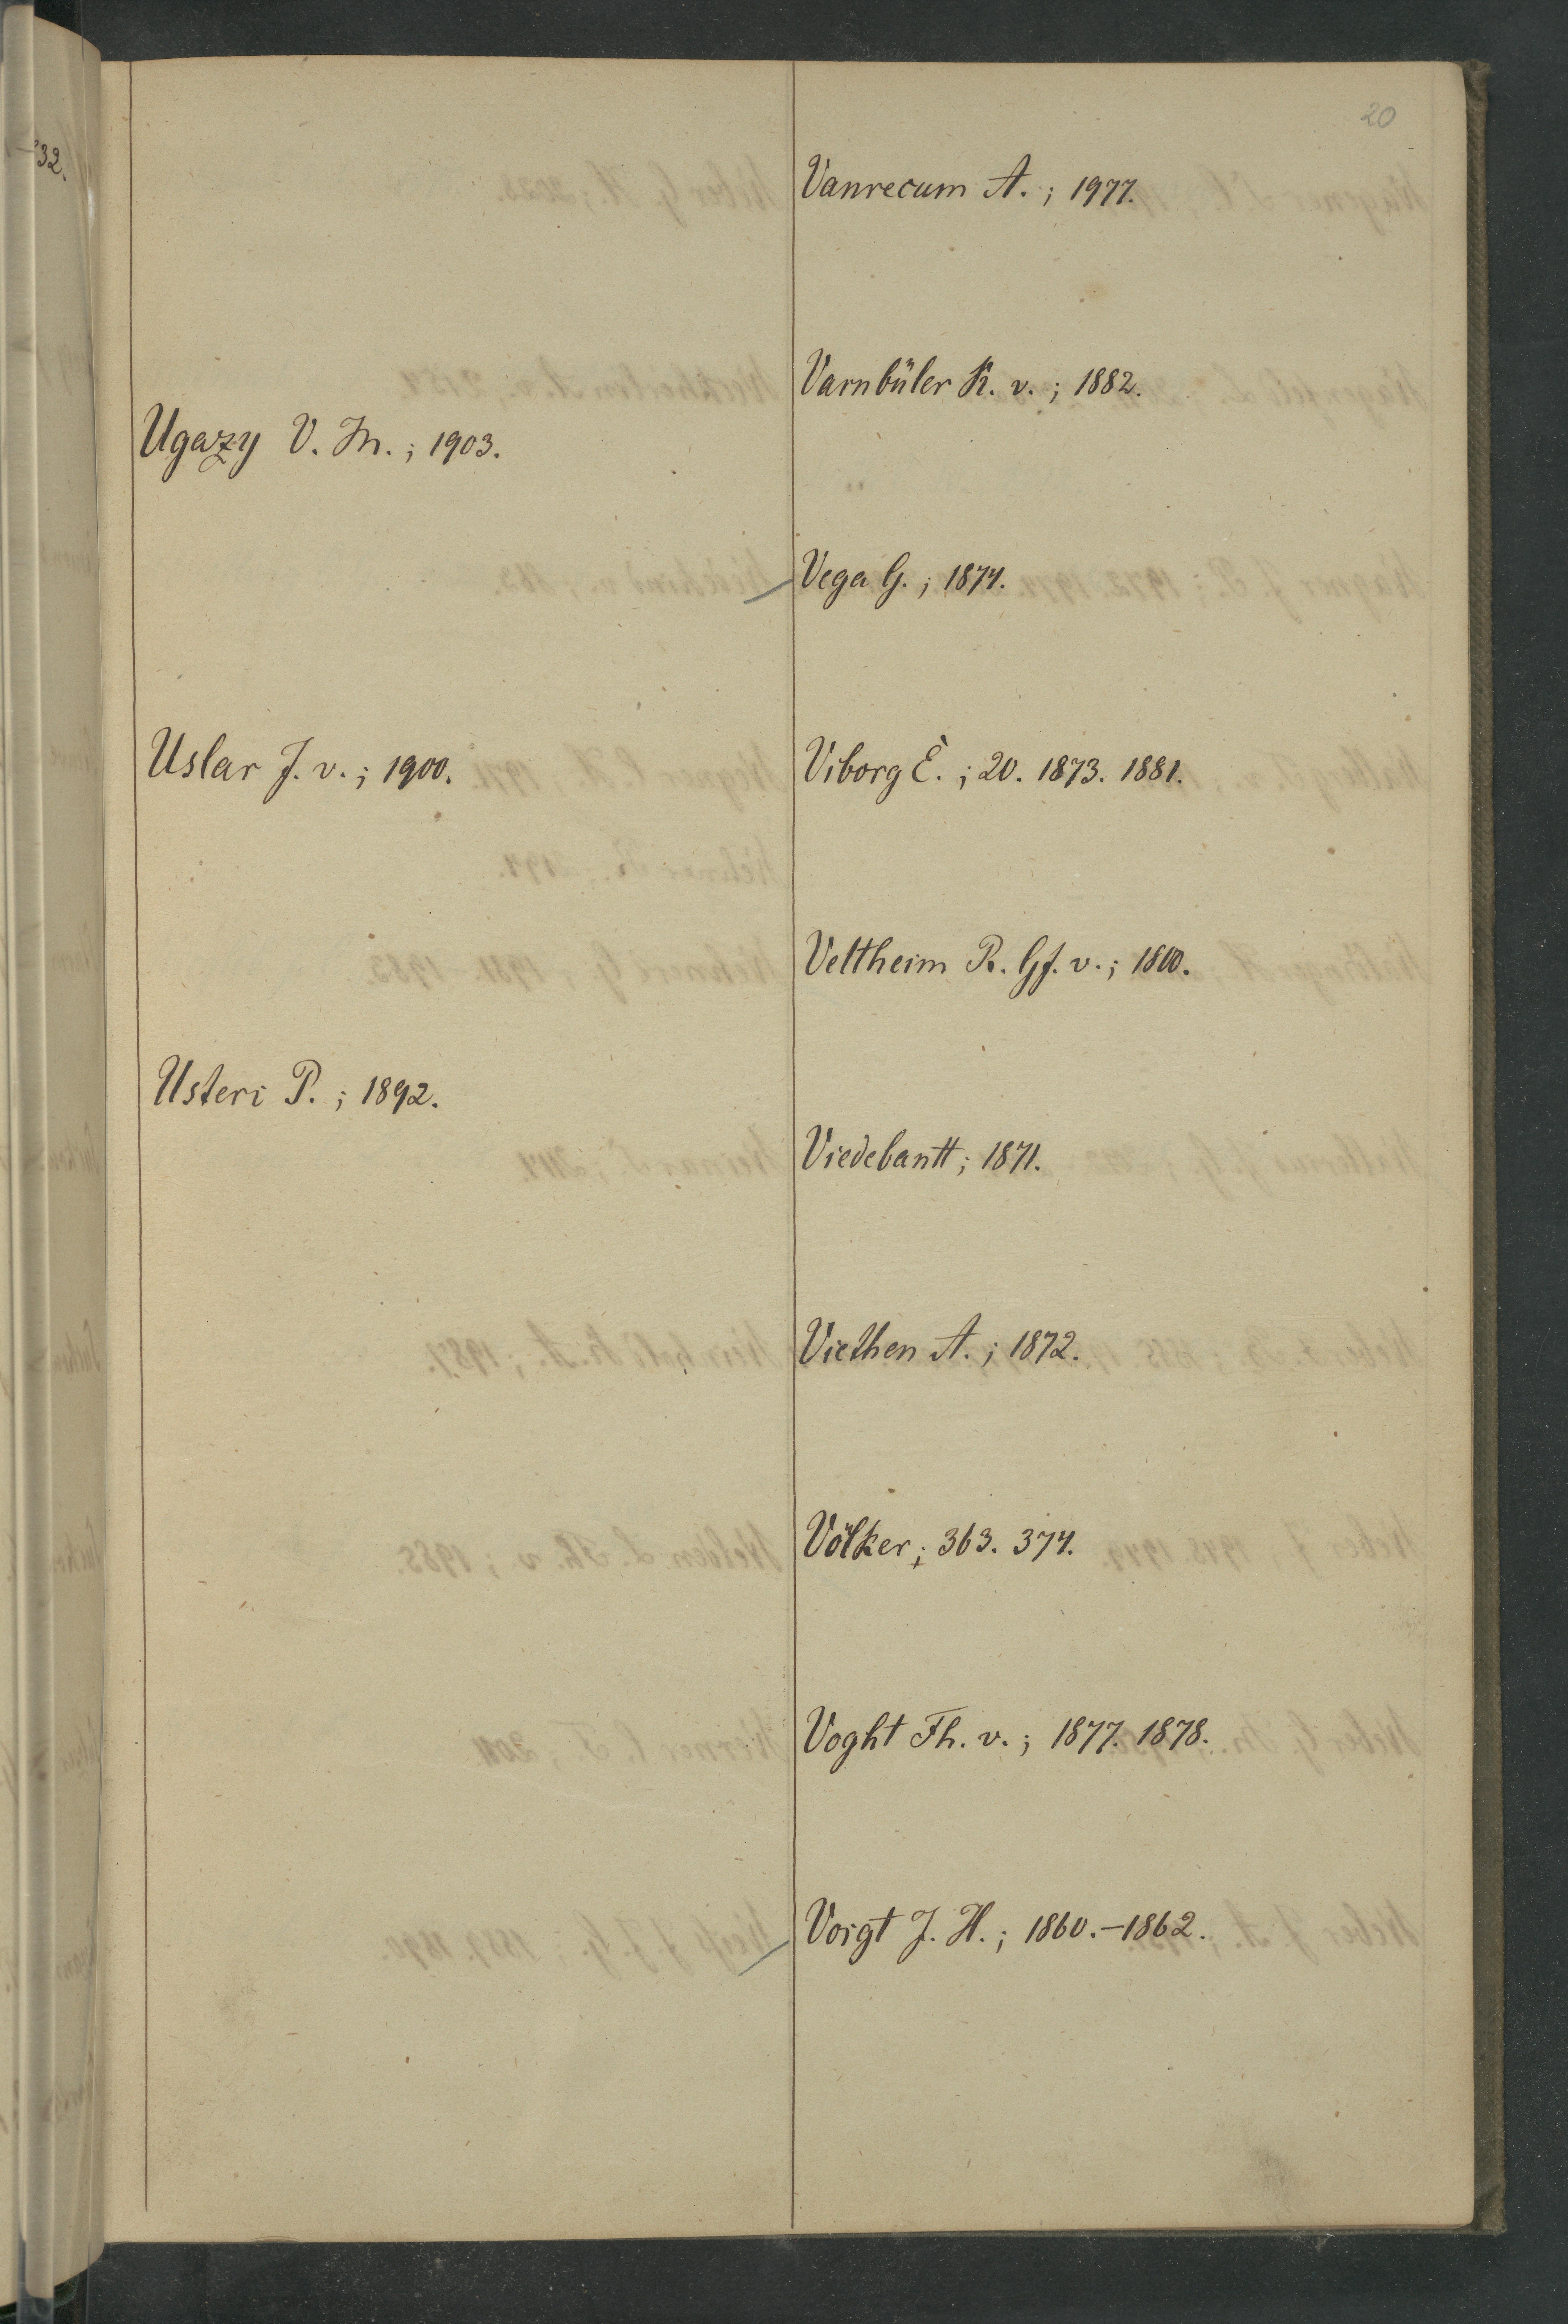 20
32.
Ugazy V. M.; 1903.
Uslar J. v.; 1900.
Usteri P.; 1892.
Vanrecum A.; 1977.
Varnbüler K. v.; 1882.
Vega G.; 1874.
Viborg E.; 20. 1873. 1881.
Veltheim R. Gf. v.; 1800.
Viedebantt; 1871.
Viethen A.; 1872.
Völker; 363. 374.
Voght Fh. v.; 1877. 1878.
Voigt J. H.; 1860.–1862.